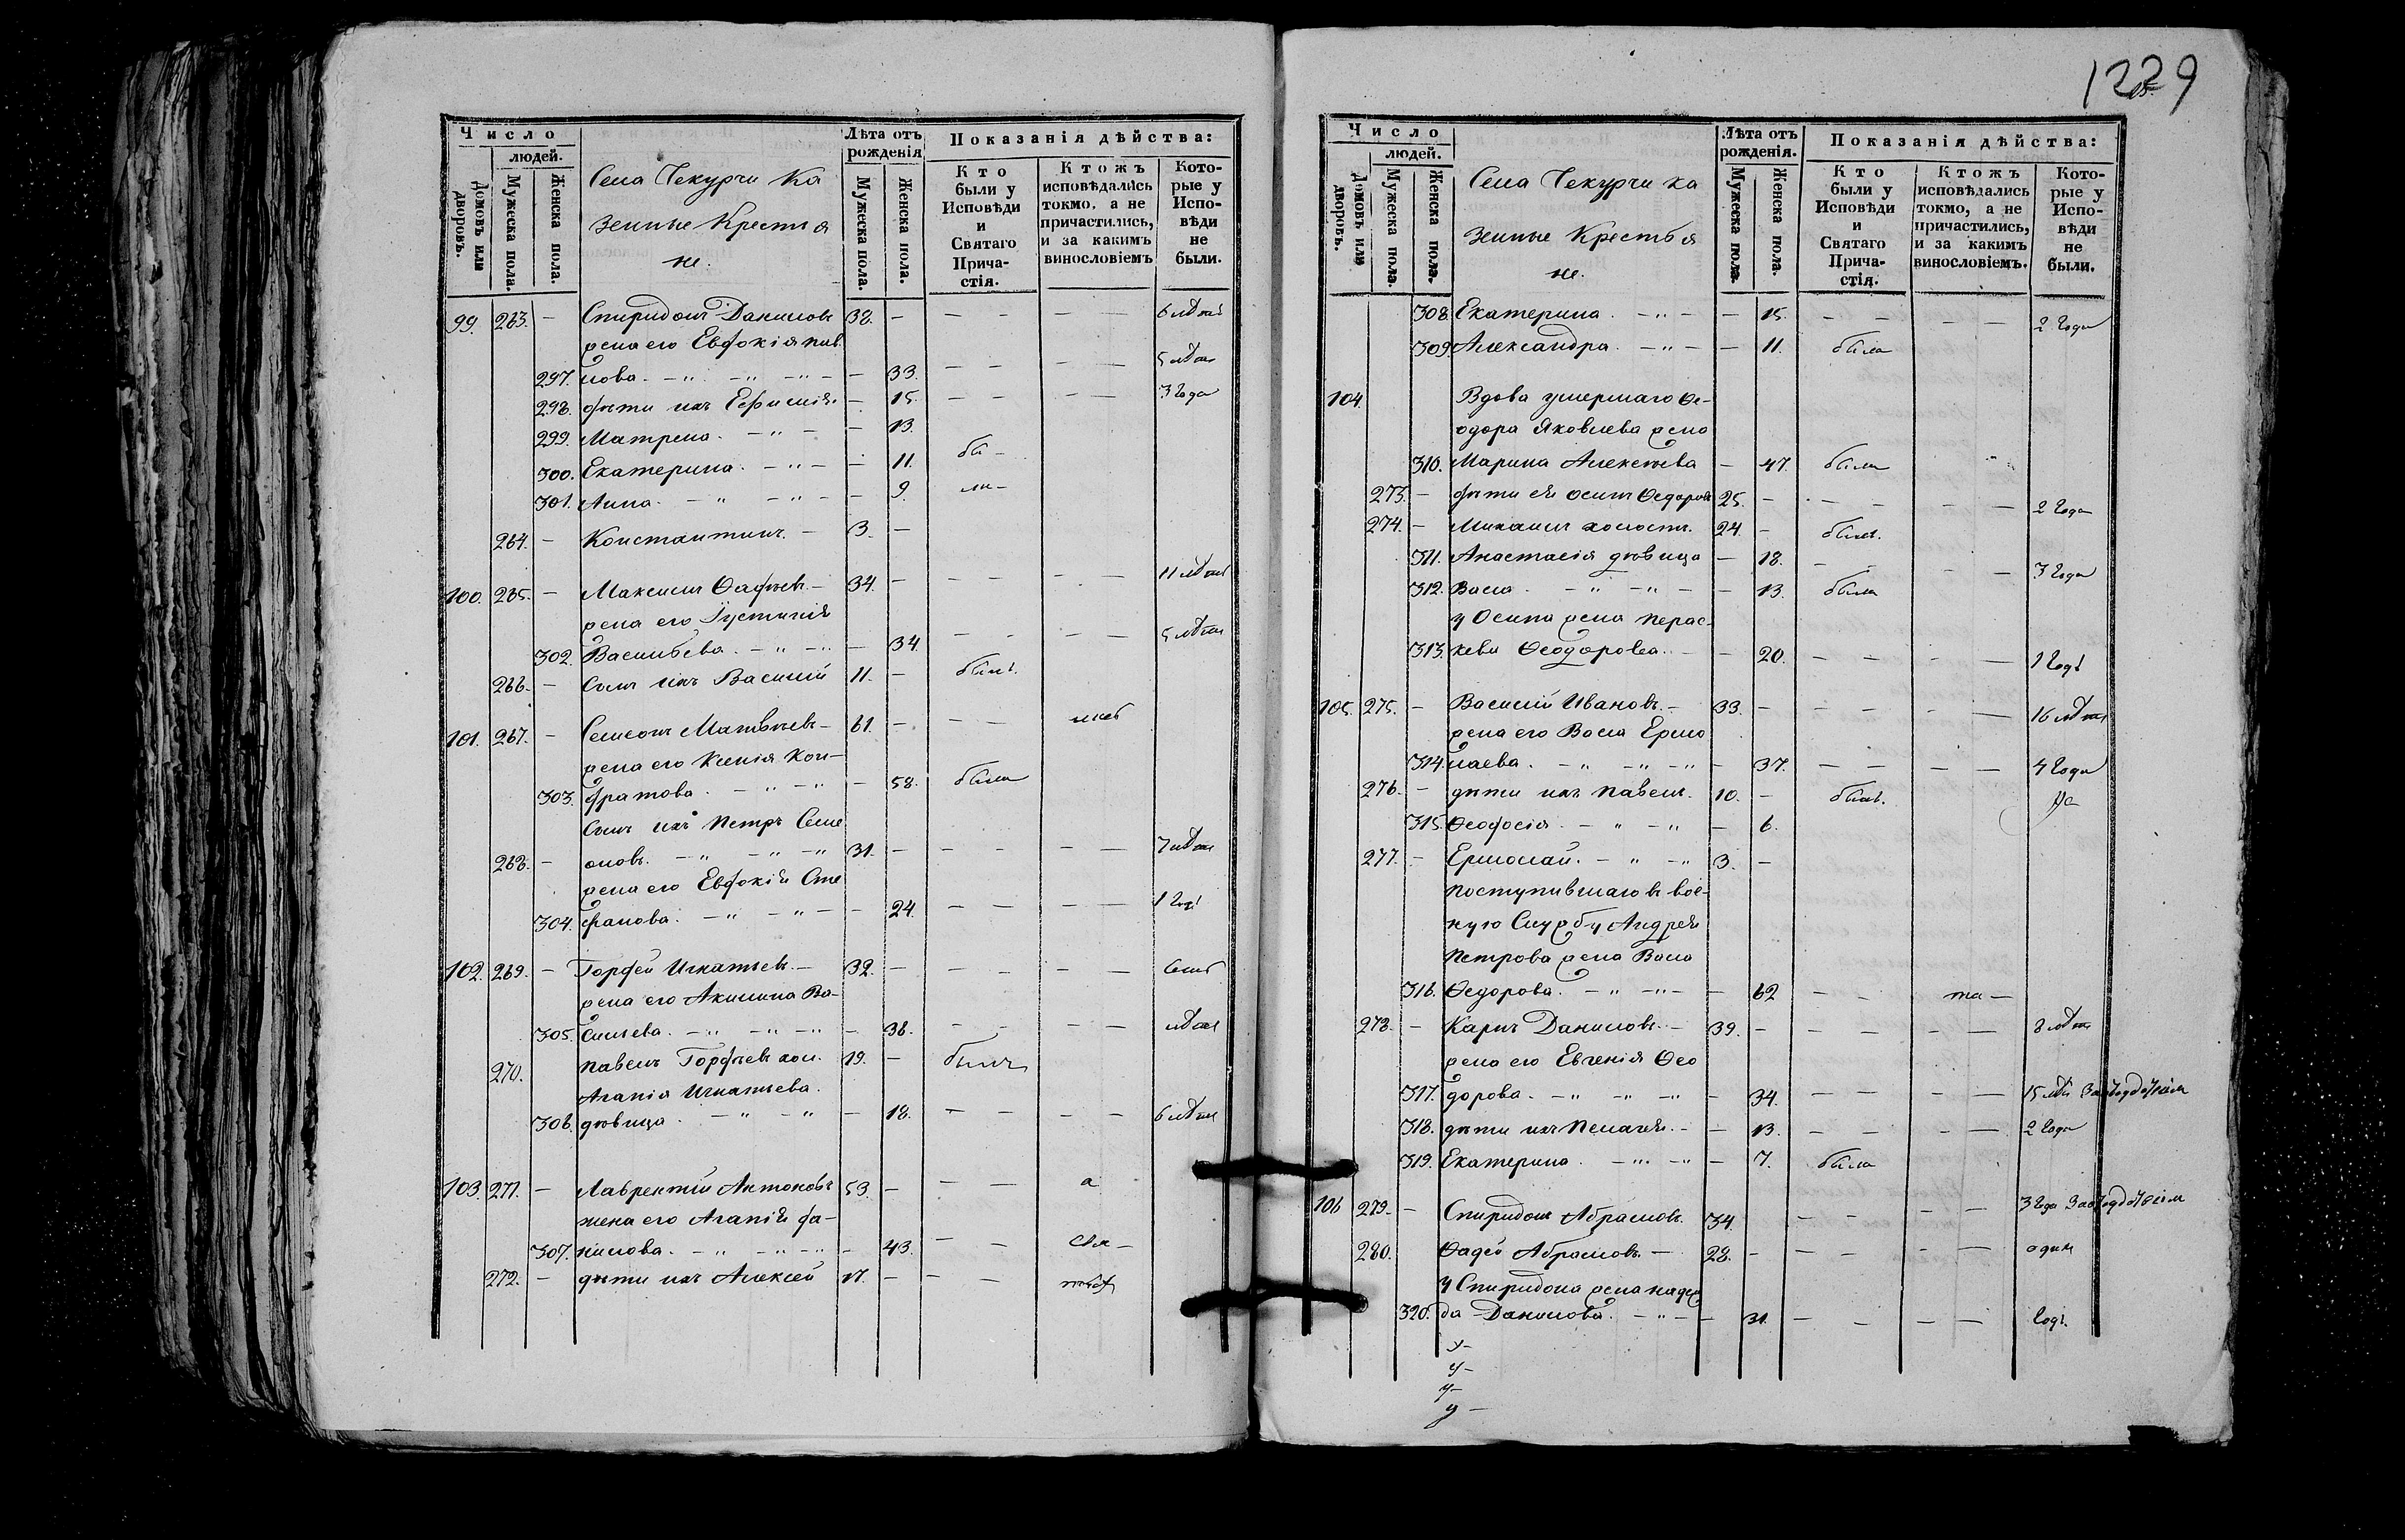 1229
Число
людей.
Домовъ или дворовъ.
Мужеска пола.
Женска пола.
Села Чекурчи Ка
зенные Крестья
не.
Лѣта отъ рожденія
Мужеска пола.
Женска пола.
Показанія дѣйства:
Кто были у Исповѣди и Святаго Причастія.
Ктожъ исповѣдались токмо, а не причастились, и за какимъ винословіемъ
Которые у Исповѣди не были.
99. 263. — Спиридонъ Даниловъ 38. — — — — — 6 лѣтъ
жена его Евдокія Пав
297. лова. — 33. — — — — 5 лѣтъ
298. дѣти ихъ Ефимія — 15. — — — — 3 года
299. Матрена. — 13.
300. Екатерина. — 11. бы-
301. Анна. — 9. ли-
264. — Константинъ. — 3. —
100. 265. — Максимъ Фадѣевъ — 34. — — — — — 11 лѣтъ
жена его Іустинія
302. Васильева. — 34. — — — — 5 лѣтъ
266. — Сынъ ихъ Василій 11. — былъ.
101. 267. — Семеонъ Матвѣевъ — 61. — — —
жена его Ксенія Кон-
303. дратова. — 58. была
Сынъ ихъ Петръ Семе
268. — оновъ. — 31. — — — — — 7 лѣтъ
жена его Евдокія Сте
304. фанова. — 24. — — — — 1 годъ
102. 269. — Гордей Игнатьевъ. — 32. — — — — — Семь
жена его Акилина Ва-
305. сильева. — 38. — — — — лѣтъ
270. Павелъ Гордѣевъ хол. 19. — былъ
Агапія Игнатьева.
306. дѣвица. — 18. — — — — 6 лѣтъ
103. 271. — Лаврентій Антоновъ 53. — — — а
жена его Агапія Да-
307. нилова. — 43. — —
272. — дѣти ихъ Алексей 17. — — —
Число
людей.
Домовъ или дворовъ.
Мужеска пола.
Женска пола.
Села Чекурчи ка
зенные Крестья
не.
Лѣта отъ рожденія.
Мужеска пола.
Женска пола.
Показанія дѣйства:
Кто были у Исповѣди и Святаго Причастія.
Ктожъ исповѣдались токмо, а не причастились, и за какимъ винословіемъ.
Которые у Исповѣди не были.
308. Екатерина. — 15. — — — — 2 года
309. Александра. — 11. была
104. Вдова умершаго Ѳе-
одора Яковлева жена
310. Марина Алексѣева — 47. была
273. — дѣти ея Осипъ Ѳедоровъ 25. — — — — — 2 года
274. — Михаилъ холостъ. 24. — былъ.
311. Анастасія дѣвица — 18. — — — — 3 года
312. Васса. — 13. была
у Осипа жена Парас-
313. кева Ѳеодорова. — 20. — — — — 1 годъ
105. 275. — Василій Ивановъ. — 33. — — — — — 16 лѣтъ
жена его Васса Ермо
314. лаева. — 37. — — — — 4 года
276. — дѣти ихъ Павелъ. 10. — былъ.
315. Ѳеодосія. — 6.
277. — Ермолай. — 3. —
Поступившаго въ вое-
ную Службу Андрея
Петрова жена Васса
316. Ѳедорова. — 62 — — та —
278. — Карпъ Даниловъ. — 39. — — — — — 8 лѣтъ
жена его Евгенія Ѳео
317. дорова. — 34. — — — — 15 лѣтъ
318. дѣти ихъ Пелагея. — 13. — — — — 2 года
319. Екатерина. — 7. была
106 279. — Спиридонъ Абрамовъ. 34. — — — — 3 года
280. Ѳадей Абрамовъ. — 28. — — — — — одинъ
у Спиридона жена Надеж
320. да Данилова. — 31. — — — — годъ.
у-
у-
у-
у-